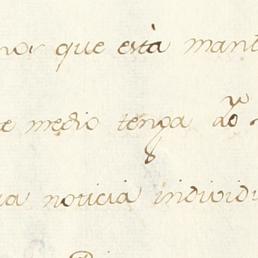 nor que està mant
e medio tenga
noticia individ